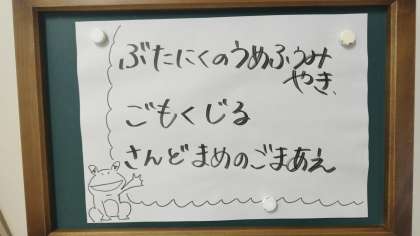 ぶたにくのうめふうみ
やき
ごもくじる
さんどまめのごまあえ